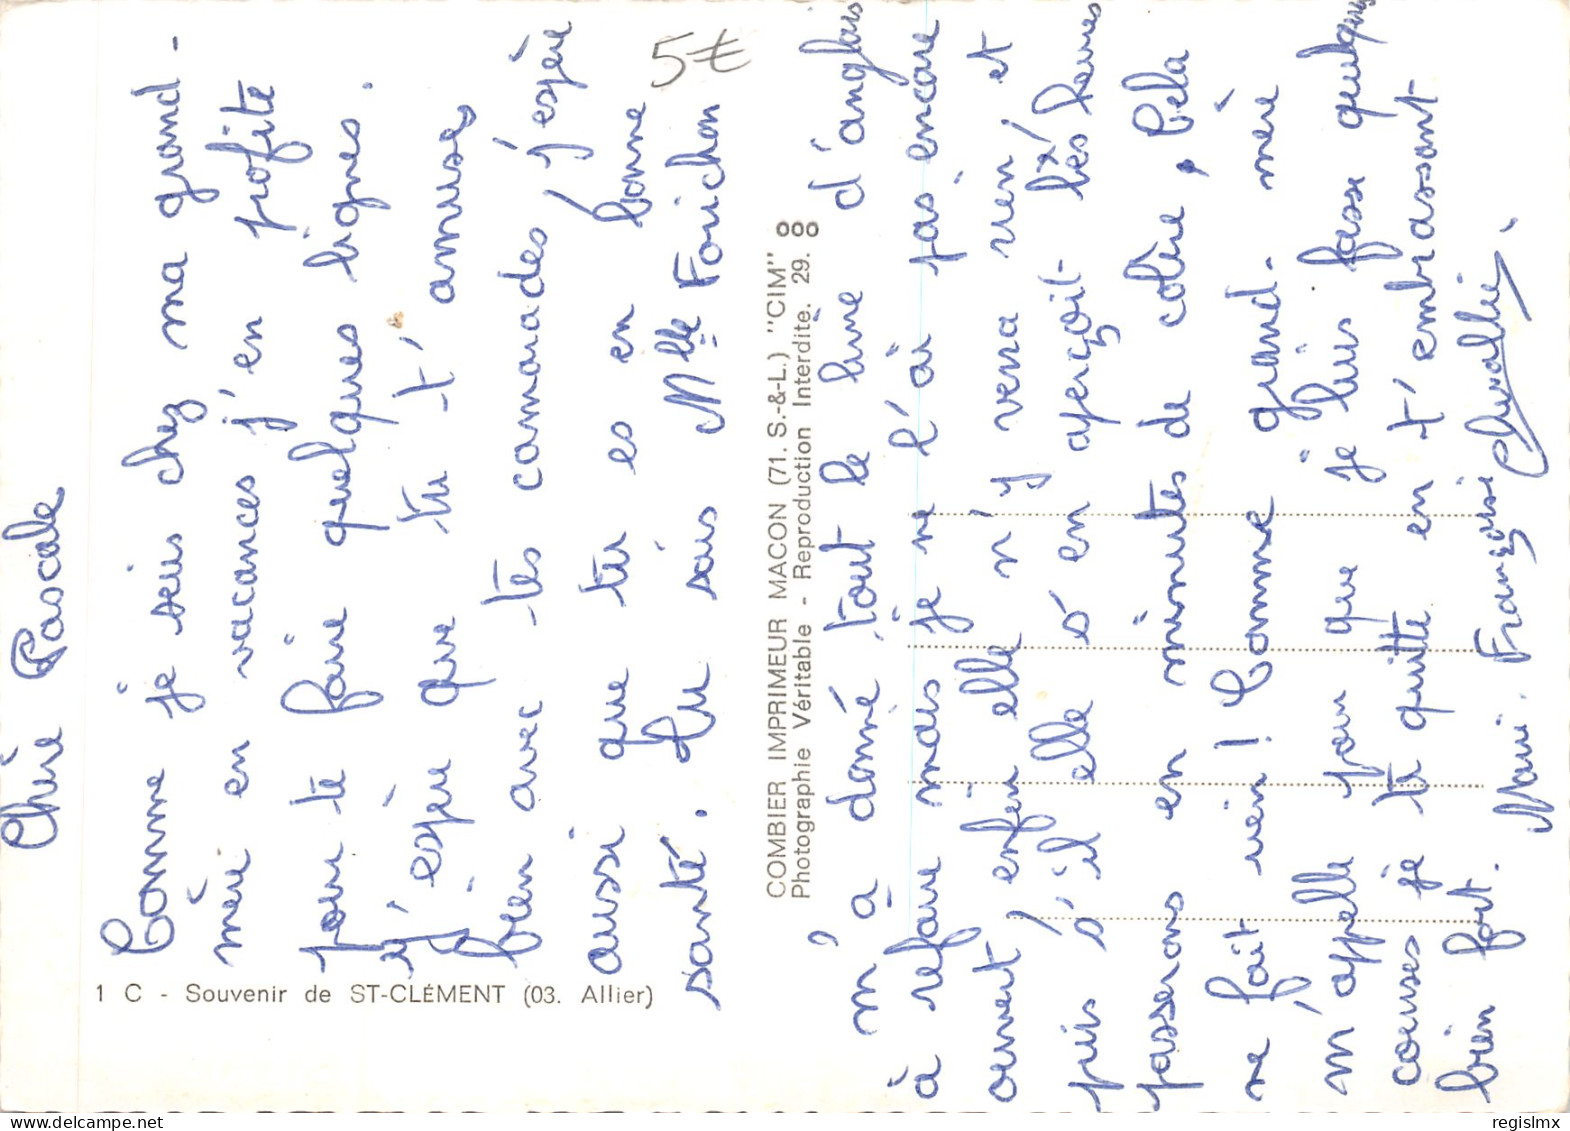 Chère Pascale
Comme je suis chez ma grand-
mère en vacances j'en profite
pour te faire quelques lignes.
j'espère que tu t'amuses
bien avec tes camarades, j'espère
aussi que tu es en bonne
santé. Tu sais Mlle Fouichon
m'a donné tout le livre d'anglais
à refaire mais je ne l'ai pas encore
ouvert, enfin elle n'y verra rien, et
puis s'il elle s'en aperçoit les heures
passerons en minutes de colère, Cela
ne fait rien! Comme grand-mère
m'appelle pour que je lui fasse quelques
courses je te quitte en t'embrassant
bien fort. Marie-Françoise Chevallier
5€
1 C - Souvenir de ST-CLÉMENT (03. Allier)
COMBIER IMPRIMEUR MACON (71. S.-&-L.) "CIM"
Photographie Véritable - Reproduction Interdite. 29.
regislmx